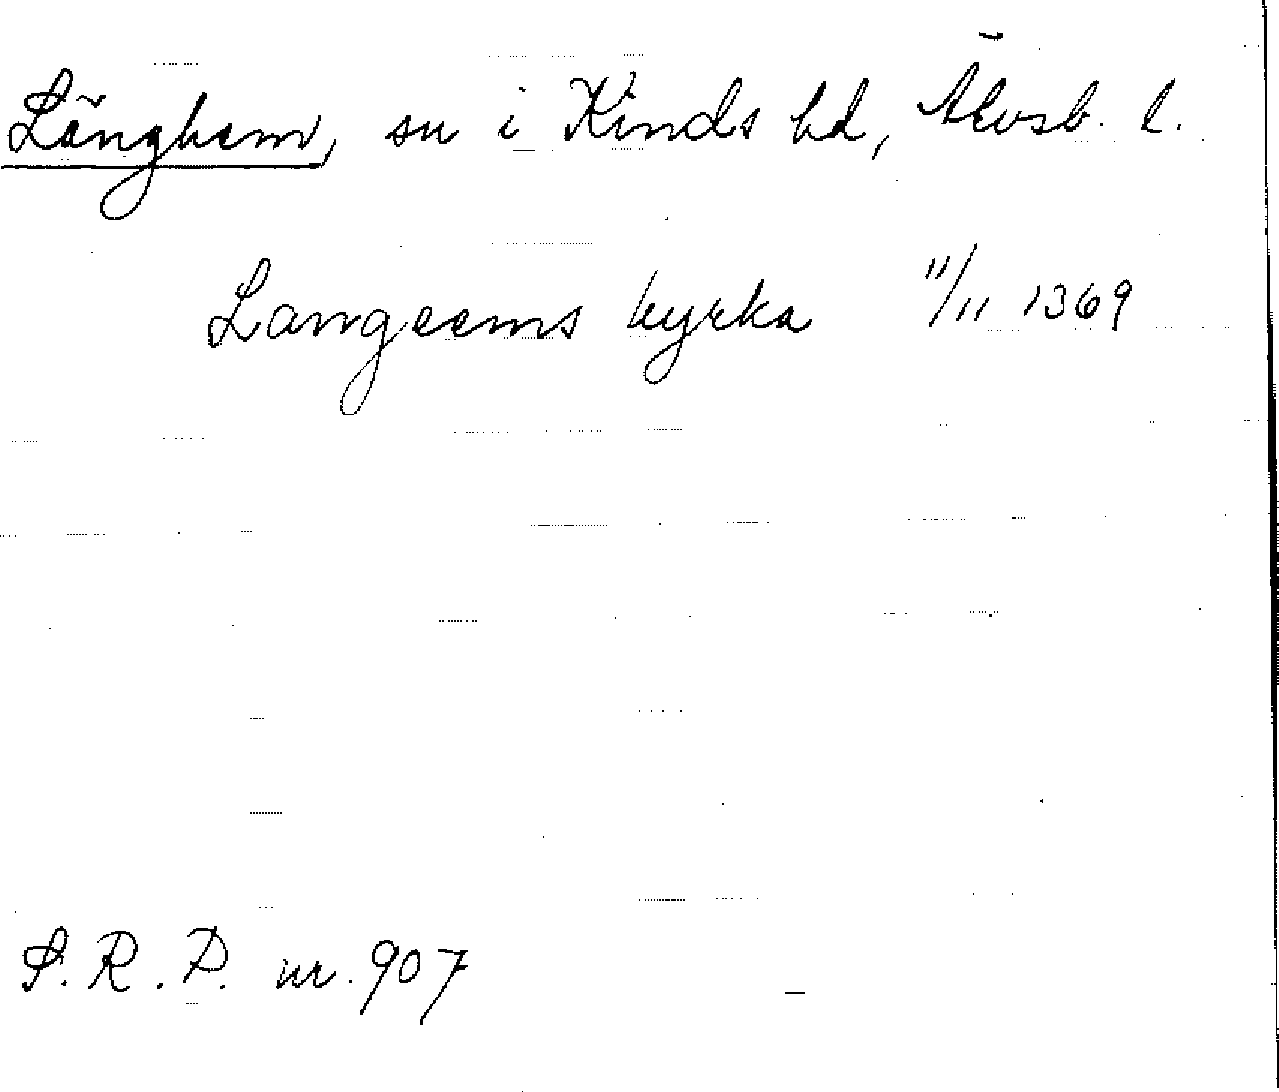 Länghem, sn i Kinds hd, Älvsb. l.
Langeems kyrka 11/11 1369
S. R. P. nr. 907